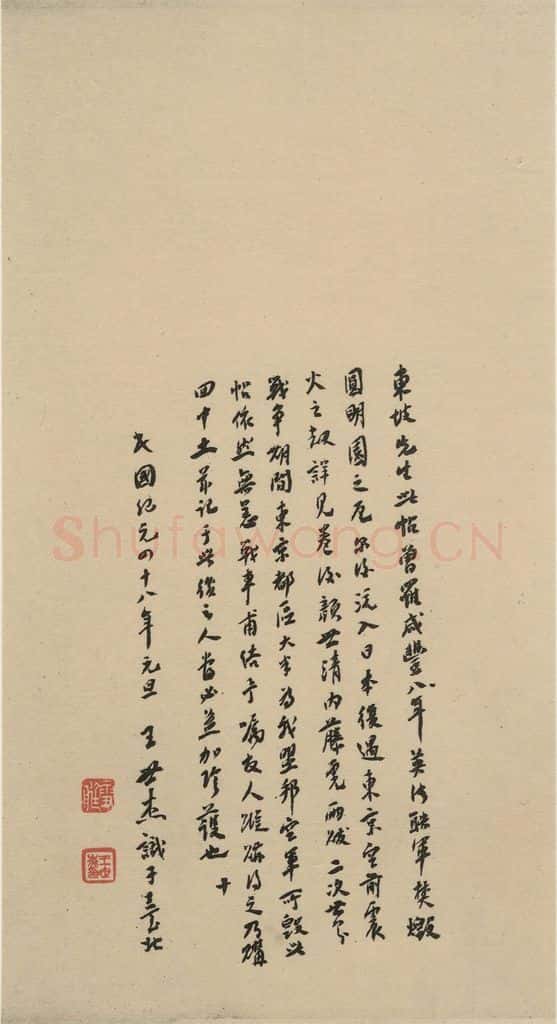 東坡先生此帖曾罹咸豐八年英法聯軍焚燬
圓明園之厄尔後流入日本復遇東京空前震
火之劫詳見卷後顏世清內藤虎兩跋二次世界
戰爭期間東京都區大半為我盟邦空軍所毀此
帖依然無恙戰事甫結予囑友人蹤跡得之乃購
回中土並記于此後之人當必益加珍護也 十
民國紀元四十八年元旦 王世杰識于臺北
雪艇
王世杰
Shufawang.CN